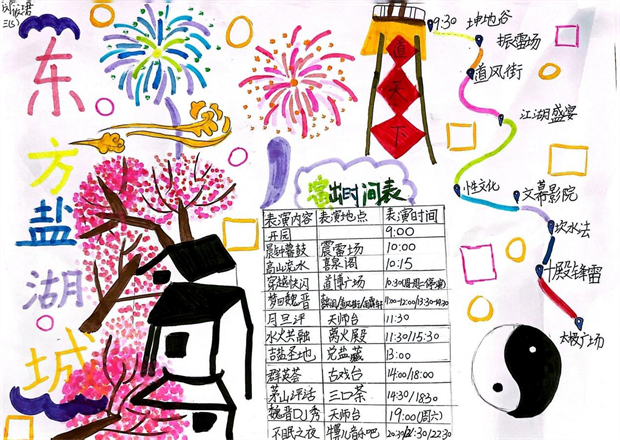 三(5)
东方盐湖城
道天下
9:30 坤地谷
振雷场
道风街
江湖盛宴
性文化
文幕影院
坎水法
十殿锋雷
太极广场
演出时间表
表演内容 表演地点 表演时间
开园 9:00
晨钟暮鼓 震雷场 10:00
高山流水 喜泉阁 10:15
穿越快闪 道博广场 10:30
梦回魏晋
月旦评 天师台 11:30
水火共融 离火殿 11:30/15:30
吉盐圣地 兑盐藏 13:00
群英荟 古戏台 14:00/18:00
茅山评话 三口茶 14:30/1830
魏晋DJ秀 天师台 19:00(周六)
不眠之夜 20:30/21:30/22:30